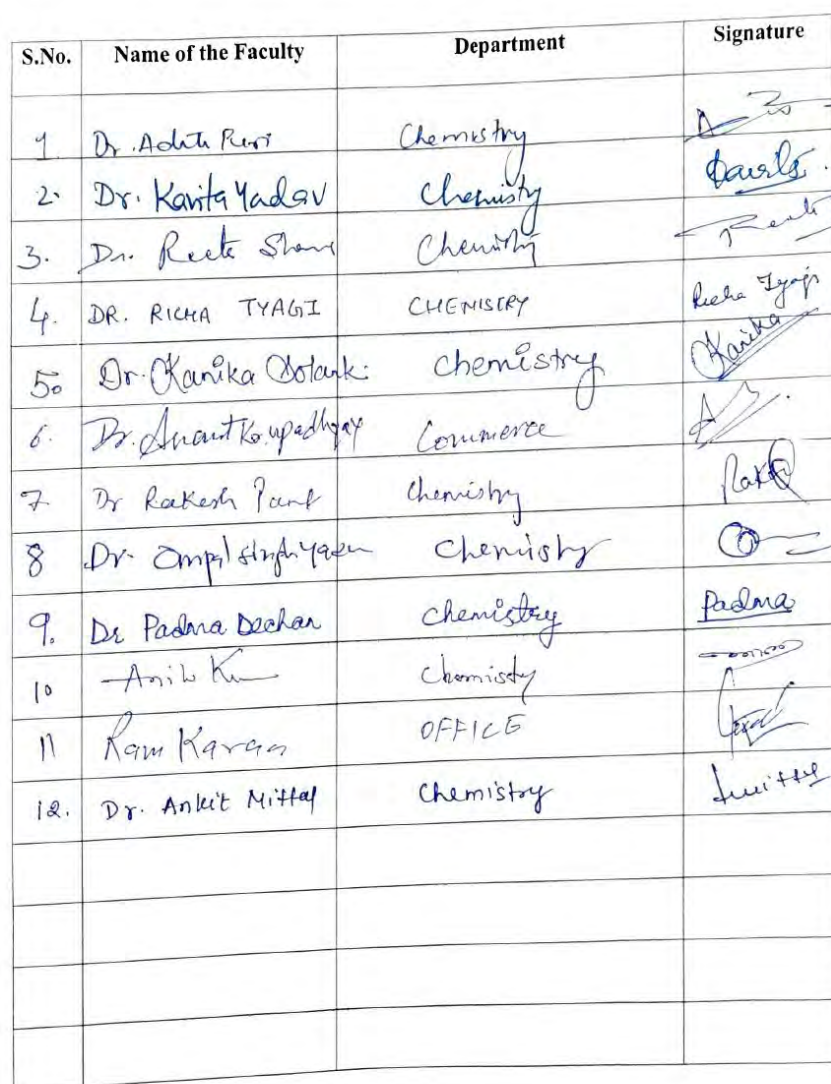 S.No. Name of the Faculty Department Signature
1. Dr. Aditi Puri Chemistry
2. Dr. Kavita Yadav Chemisty
3. Dr. Chemistry
4. DR. RICHA TYAGI CHEMISTRY Richa Tyagi
5. Dr. Kanika Solanki Chemistry Kanika
6. Dr. Anant Kr. upadhyay Commerce
7. Dr Rakesh Pant Chemistry
8 Dr. Ompal singh Yadav Chemistry
9. Dr Padma Dechan Chemistry Padma
10 Chemisty
11 Ram Karan OFFICE
12. Dr. Ankit Mittal Chemistry